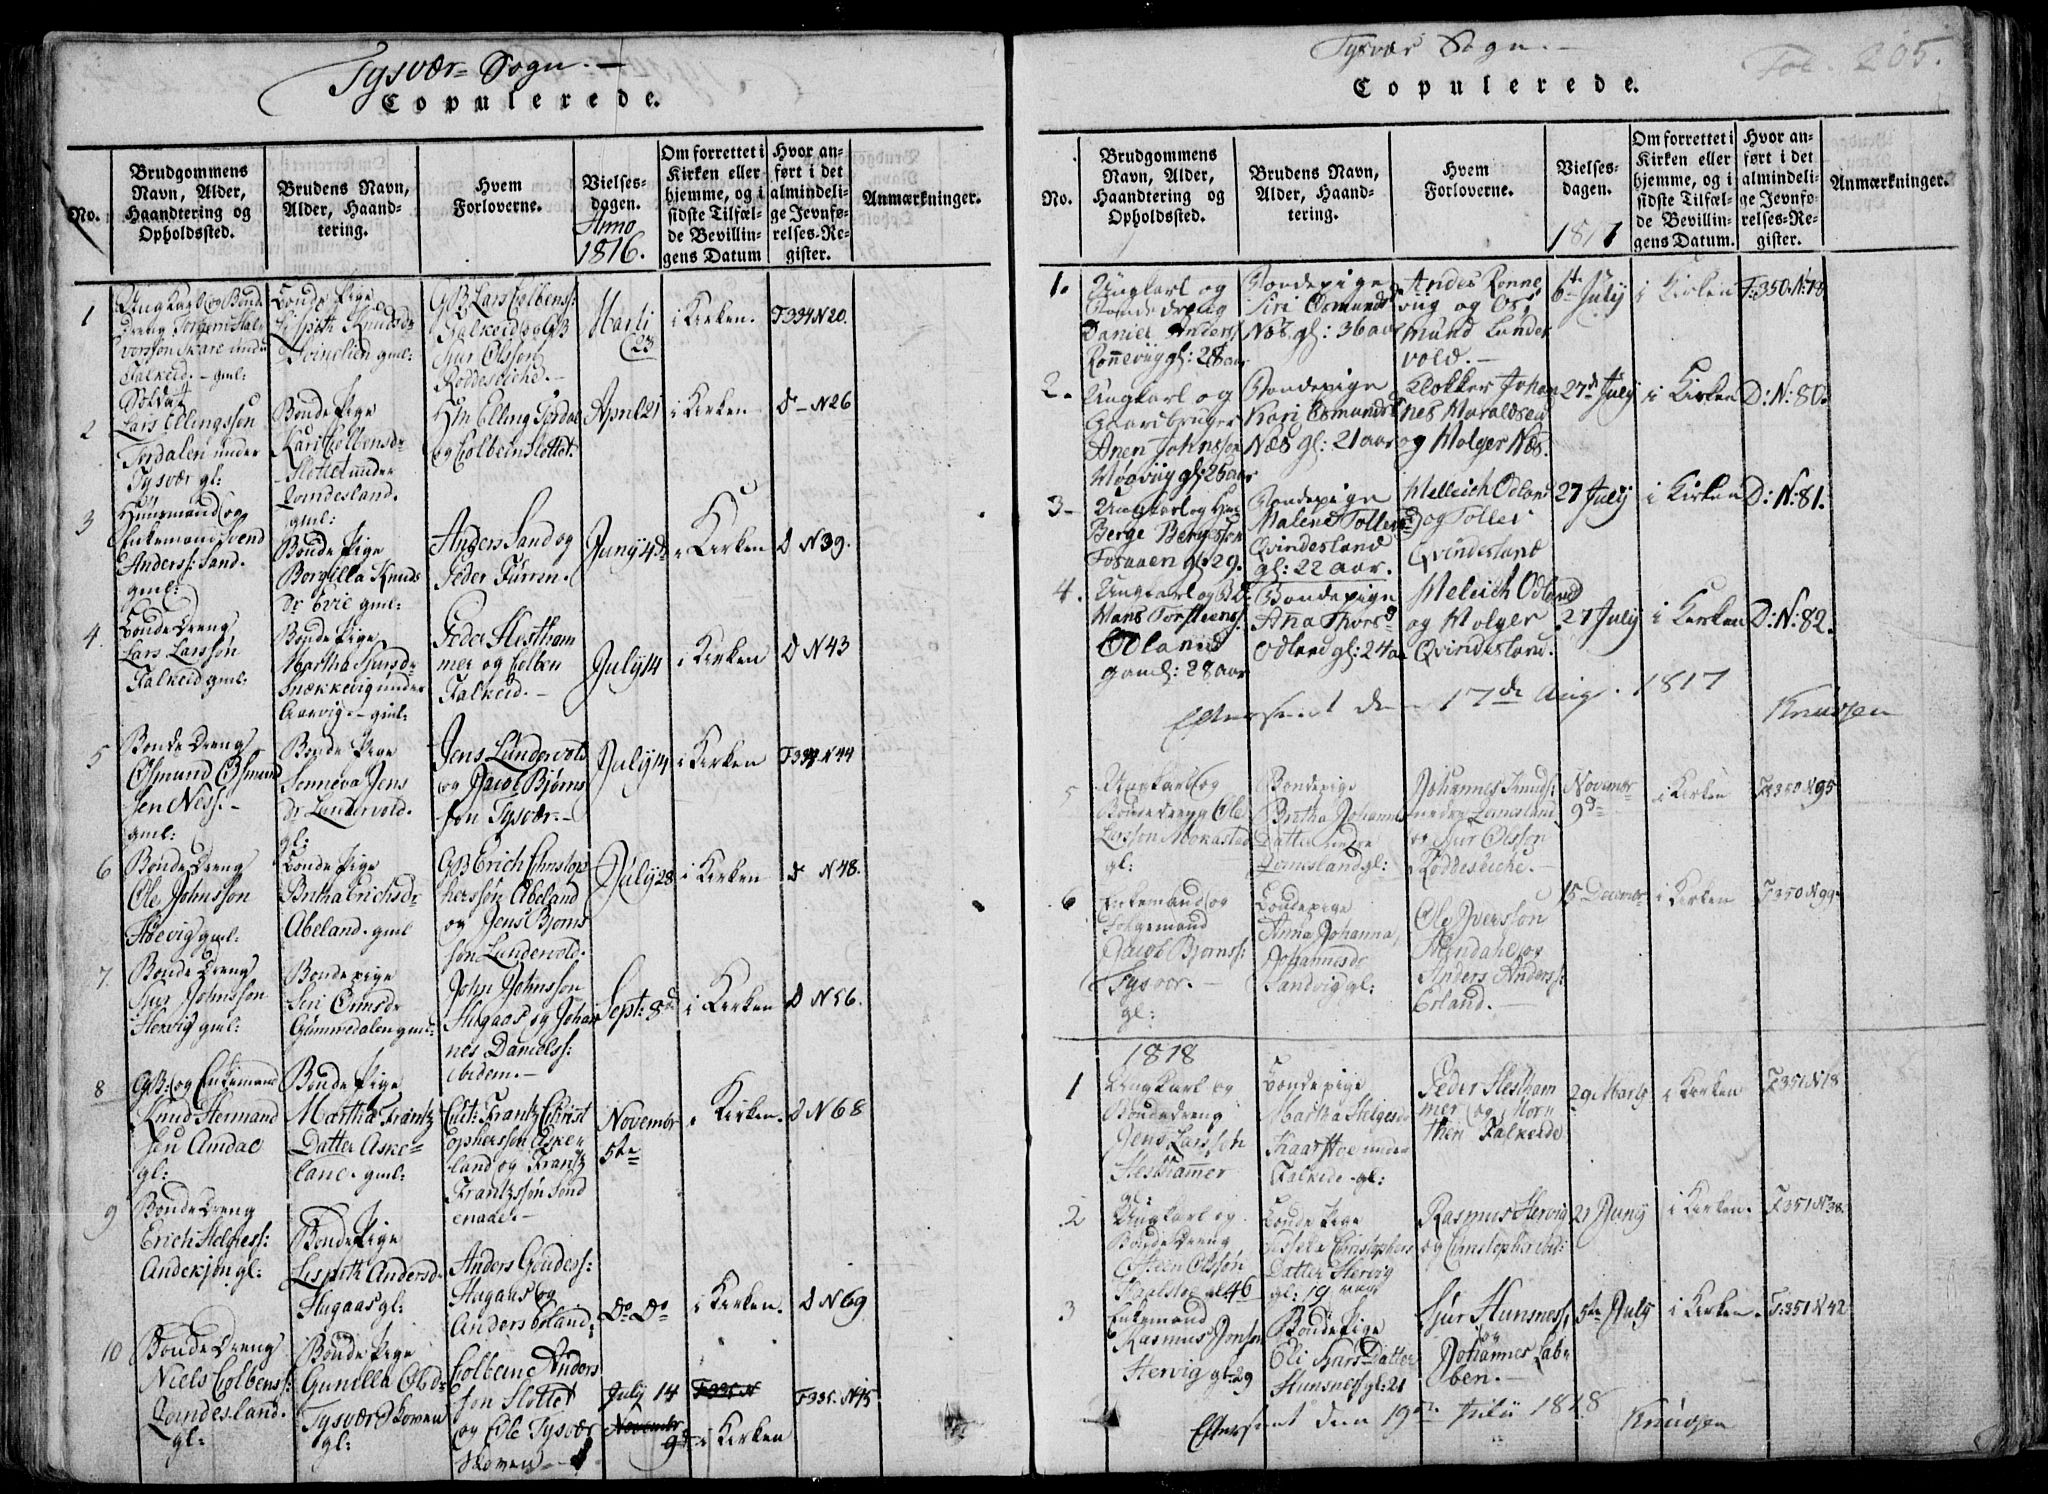 Tysvær Sogn. —
Copulerede.
No.
Brudgommens
Navn, Alder,
Haandtering og
Opholdssted.
Brudens Navn,
Alder, Haand-
tering.
Hvem
Forloverne.
Vielses-
dagen.
Anno
1816.
Om forrettet i
Kirken eller
hjemme, og i
sidste Tilfæl-
de Bevillin-
gens Datum
Hvor an-
ført i det
almindeli-
ge Jevnfø-
relses-Re-
gister.
Anmærkninger.
1
Falkeid. – gml:
Bonde Pige
Lispith Knudsdr
GB Lars Colbens:
Falkeid og GB
Sjur Olsson
Røddeseiche. –
Marti
23
i Kirken.
F334 N20.
2
Soldat
Lars Ellingssøn
Førdalen under
Tysvær gl:
Bonde Pige
Kari Colbensdr
Slottet under
gml:
Hm Elling Førdal
og Colbein Slottet.
April 21
i Kirken
D – N26
3
Huusmand og
Enkemand Svend
Anderss: Sand.
gml:
Bonde Pige
Borgilla Knuds
Dr Evie gml:
Anders Sand og
Peder Furren.
Juny 4de
i Kirken
D N39.
4.
Bonde Dreng
Lars Larssøn
Falkeid gml:
Bonde Pige
Martha Sjursdr
Snækkevig under
Aarvig. – gml:
Peder Hestham
mer og Colben
Falkeid. –
July 14
i Kirken
D N43
5
Bonde Dreng
Osmund Osmund
sen Ness. –
gml:
Bonde Pige
Sonneva Jens
dr Lundervold.
gl:
Jens Lundervold
og Jacob Bjørns
søn Tysvær. –
July 14
i Kirken
F334 N44
6
Bonde Dreng
Ole Johnssøn
Høevig gml:
Bonde Pige
Britha Erichsdr
Abeland. gml
GB Erich Christop
herssøn Abeland
og Jens Bjørns
søn Lundevold.
July 28
i Kirken
d N48.
7.
Bonde Dreng
Sjur Johnssøn
Hervig gml:
Bondepige
Siri Ormsdr
Gummedalen gml:
John Johnssøn
Hugaas og Johan
nes Daniels:
ibidem. –
Sept: 8d
i Kirken
D N56.
8
GB: og Enkemand
Knud Hermand
sen Amdal
gl:
Bonde Pige
Martha Frantz
Datter Aske-
land. gml:
Cult: Frantz Christ
ophersson Aske
land og Frantz
Frantzssøn Sønd
enaae. –
Novembr
5te
i Kirken.
D N68
9
Bonde Dreng
Erich Helgess:
gl:
Bonde Pige
Lispith Andersd
Hugaas gl:
Anders Goudess:
Hugaas og
Anders Eeland:
Do Do
i Kirken.
D N69
10
Bonde Dreng
Niels Colbenss:
gl:
Bonde Pige
Gunilla Olsdr
Tysvær Skoven
gl:
Colbeine Anders
søn Slottet
og Ole Tysvær
Skoven –
July 14
Novembr
9d
F335. N
i Kirken
F335. N45
Tysvær Sogn. –
Fol. 205.
Copulerede.
No.
Brudgommens
Navn, Alder,
Haandtering og
Opholdssted.
Brudens Navn,
Alder, Haand-
tering.
Hvem
Forloverne.
Vielses-
dagen.
1817
Om forrettet i
Kirken eller
hjemme, og i
sidste Tilfæl-
de Bevillin-
gens Datum.
Hvor an-
ført i det
almindeli-
ge Jevnfø-
relses-Re-
gister.
Anmærkninger.
1.
Ungkarl og
Bondedreng
Daniel Anders
Rønnevig gl: 28 aar
Bondepige
Siri Osmunds
Næs. gl: 36 aar
Andes Rønne
viig og Os
mund Lunder
vold. –
6te July
i Kirken
F:350.N:78
2.
Ungkarl og
Gaardbruger
Anen Johnssøn
gl: 25 aar
Bondepige
Kari Osmunds
Næs gl: 21 aar
Klokker Johan
nes Haraldseg
og Holger Næs.
27d July
i Kirken
D: N:80.
3 –
Ungkarl og
Berge Bergsson
Fosaaen gl: 29.
Bondepige
Malene Tolles
Qvindesland
gl: 22 aar.
Melleich Odland
og Tolles
Qvindesland
27 July
i Kirken
D: N:81.
4.
Ungkarl og BD:
Hans Torsteens:
Odland
gaml: 28 aar
Bondepige
Ana Thorsd
Odland gl: 24 aa
Meleich Odland
og Holger
Qvindesland.
27 July
i Kirken
D: N:82.
Efterseet den 17de Aug. 1817
Knudsen
5
Ungkarl og
Bondedreng Ole
Larssøn Mokastad
gl:
Bondepige
Britha Johannes
Datter nedre
gl:
Johannes Knuds:
og Sjur Olsson
Røddeseiche. –
Novembr
9d
i Kirken
F350 N95
6
Enkemand og
Jacob Bjørnss:
Tysvær. –
gl:
Bondepige
Anna Johanna
Johannesdr
Sandvig gl:
Ole Iverssøn
og
Anders Anders:
Erland. –
15 Decembr
i Kirken
F350 N99.
1818
1
Ungkarl og
Bondedreng
Jens Larssen
Hesthammer
gl:
Bondepige
Martha Helgesd
Kaarstoe under
Falkeide. gl:
Peder Hestham
mer og Mor
then Falkeide
29 Marty
i Kirken
F351 N18
2
Ungkarl og
Bonde Dreng
Steen Olssøn
gl 46
Bonde Pige
Christophers
Datter Hervig
gl: 19 aar
Rasmus Hervig
og Christopher ibid:
21 Juny
i Kirken.
F351 N38.
3
Enkemand
Rasmus Jonsen
Hervig gl: 29
Bonde Pige
Eli Sjurs Datter
Hunsness gl: 21
Sjur Hunsness
og
Johannes Lab
ben. –
5te July
i Kirken.
F:351 N42
Efterseet den 19de Julii 1818
Knudsen